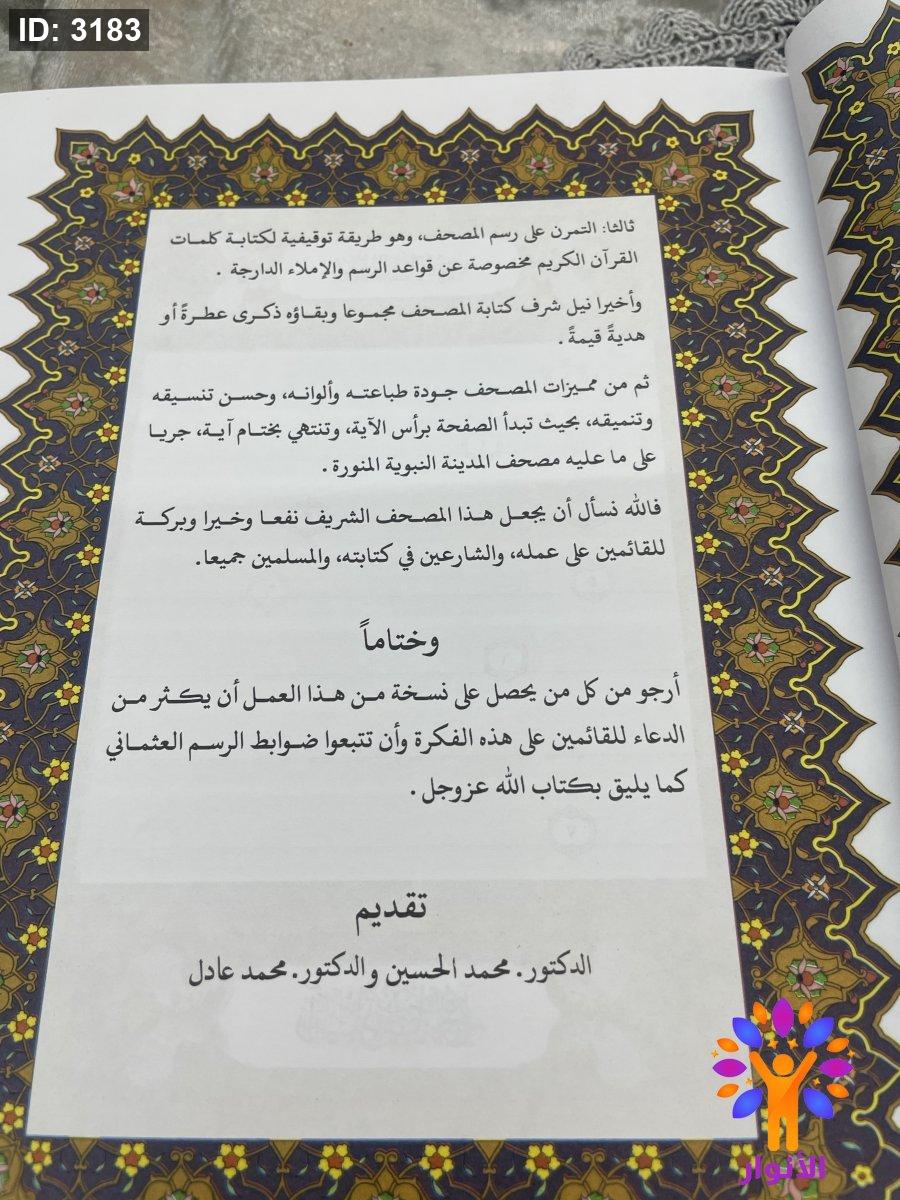 ID: 3183
ثالثا: التمرن على رسم المصحف، وهو طريقة توقيفية لكتابة كلمات
القرآن الكريم مخصوصة عن قواعد الرسم والإملاء الدارجة .
وأخيرا نيل شرف كتابة المصحف مجموعا وبقاؤه ذكرى عطرةً أو
هديةً قيمةً .
ثم من مميزات المصحف جودة طباعته وألوانه، وحسن تنسيقه
وتنميقه، بحيث تبدأ الصفحة برأس الآية، وتنتهي بختام آية، جريا
على ما عليه مصحف المدينة النبوية المنورة .
فالله نسأل أن يجعل هذا المصحف الشريف نفعا وخيرا وبركة
للقائمين على عمله، والشارعين في كتابته، والمسلمين جميعا.
وختاماً
أرجو من كل من يحصل على نسخة من هذا العمل أن يكثر من
الدعاء للقائمين على هذه الفكرة وأن تتبعوا ضوابط الرسم العثماني
كما يليق بكتاب الله عزوجل .
تقديم
الدكتور. محمد الحسين والدكتور. محمد عادل
الأنوار